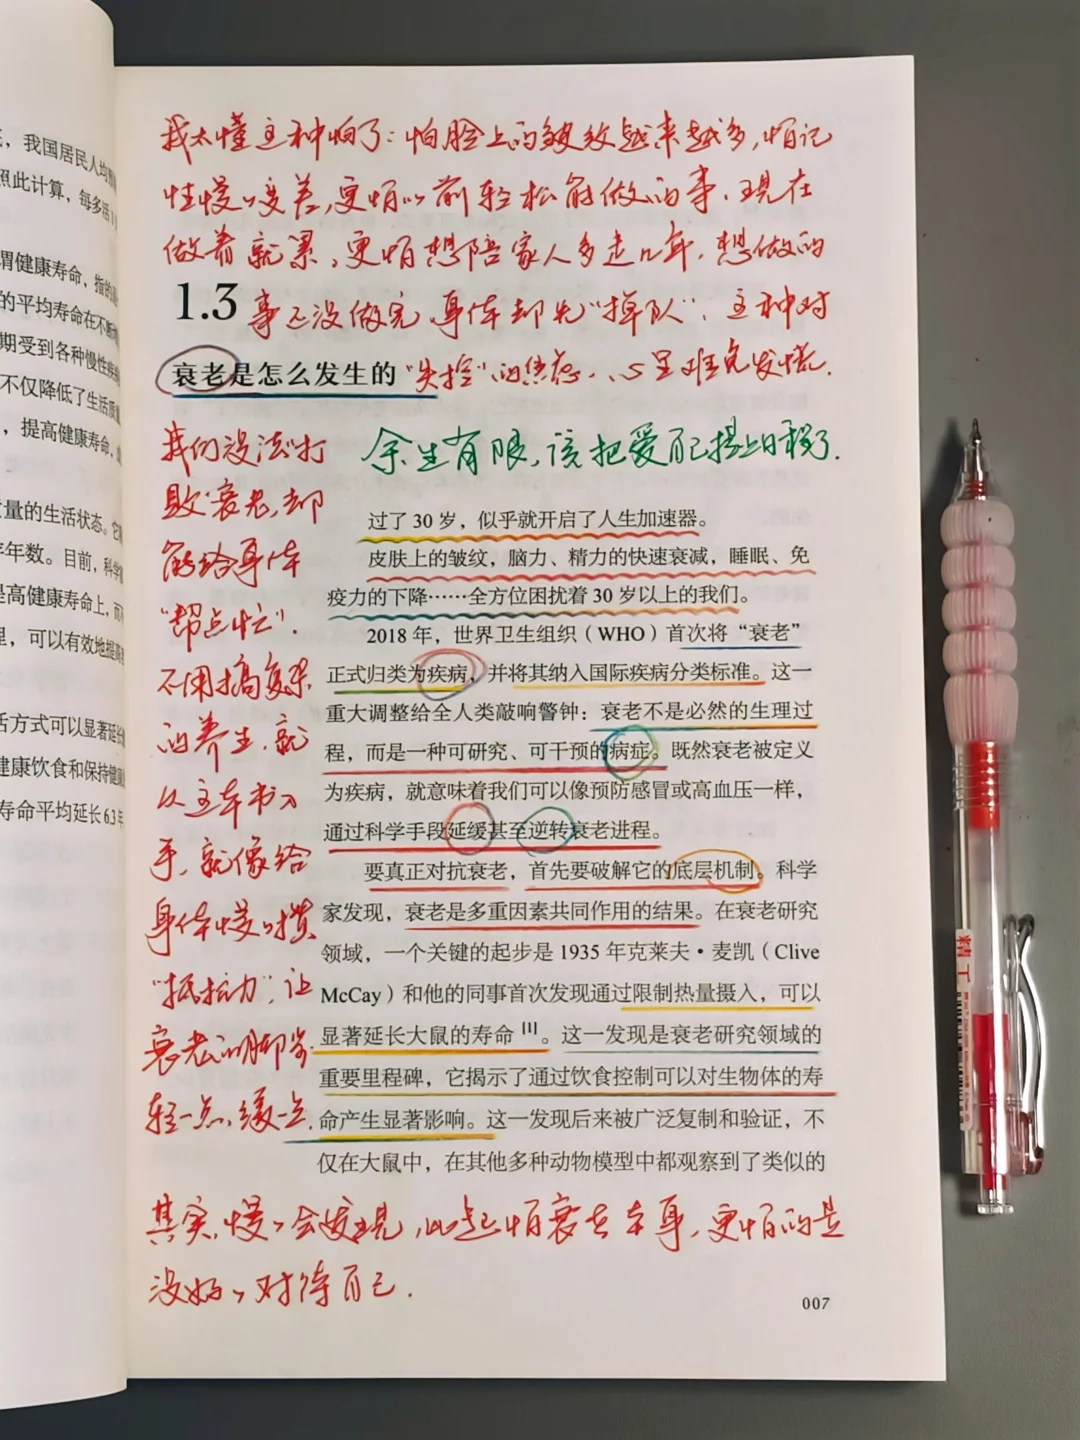 ，我国居民人均
照此计算，每多活1
谓健康寿命，指的
的平均寿命在不断
期受到各种慢性疾
不仅降低了生活质
，提高健康寿命，
量的生活状态。它
年数。目前，科学
是高健康寿命上，而
里，可以有效地提高
活方式可以显著延长
健康饮食和保持健康
寿命平均延长6.3年
我太懂这种怕了：怕脸上的皱纹越来越多，怕记
性慢慢变差，更怕以前轻松能做的事，现在
做着就累，更怕想陪家人多走几年，想做的
事还没做完，身体却先“掉队”，这种对
“失控”的焦虑，心里难免发慌.
1.3
衰老是怎么发生的
余生有限，该把爱自己提上日程了.
我们没法“打
败”衰老，却
能给身体
“帮点忙”.
不用搞复杂
的养生，就
从这本书入
手，就像给
身体慢慢攒
“抵抗力”，让
衰老的脚步
轻一点，缓一点.
过了30岁，似乎就开启了人生加速器。
皮肤上的皱纹，脑力、精力的快速衰减，睡眠、免
疫力的下降……全方位困扰着30岁以上的我们。
2018年，世界卫生组织（WHO）首次将“衰老”
正式归类为疾病，并将其纳入国际疾病分类标准。这一
重大调整给全人类敲响警钟：衰老不是必然的生理过
程，而是一种可研究、可干预的病症。既然衰老被定义
为疾病，就意味着我们可以像预防感冒或高血压一样，
通过科学手段延缓甚至逆转衰老进程。
要真正对抗衰老，首先要破解它的底层机制。科学
家发现，衰老是多重因素共同作用的结果。在衰老研究
领域，一个关键的起步是1935年克莱夫·麦凯（Clive
McCay）和他的同事首次发现通过限制热量摄入，可以
显著延长大鼠的寿命[1]。这一发现是衰老研究领域的
重要里程碑，它揭示了通过饮食控制可以对生物体的寿
命产生显著影响。这一发现后来被广泛复制和验证，不
仅在大鼠中，在其他多种动物模型中都观察到了类似的
其实，慢慢会发现，比起怕衰老本身，更怕的是
没好好对待自己.
007
精工